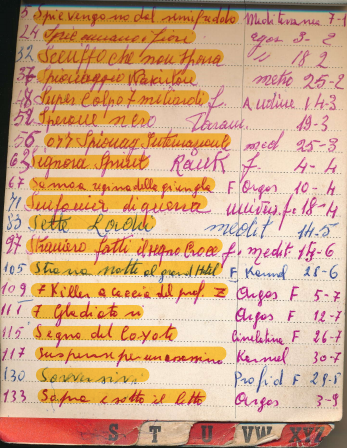 5 Spie vengono dal semifreddo Mediterranea 7-1
24 Spie amano i fiori Regos 3-2
32 Sceriffo che non spara " 18 2
37 Spionaggio metro 25-2
48 Super Colpo 7 miliardi f. Audine 14-3
52 Sperone nero 19-3
56 077 Spionag Internazionale med 25-3
63 Signora Sprint Rank f. 4-4
67 Samoa regina della giungla F Orgos 10-4
71 Sinfonia di guerra univer. f. 18-4
83 Sette Lord medit 14-5
97 Straniero fatti il segno Croce f. medit 14-6
105 Strana notte al grand Hotel F Kamel 28-6
109 7 Killer a caccia del prof Z Orgos F 5-7
111 7 Gladiatori Orgos F 12-7
115 Segno del Coyote Cinelatina F 26-7
117 Suspense per un assassino Kamel 30-7
130 Sovversivi Profid F 29-8
133 Sopra e sotto il letto Orgos 3-9
S T U VW XYZ